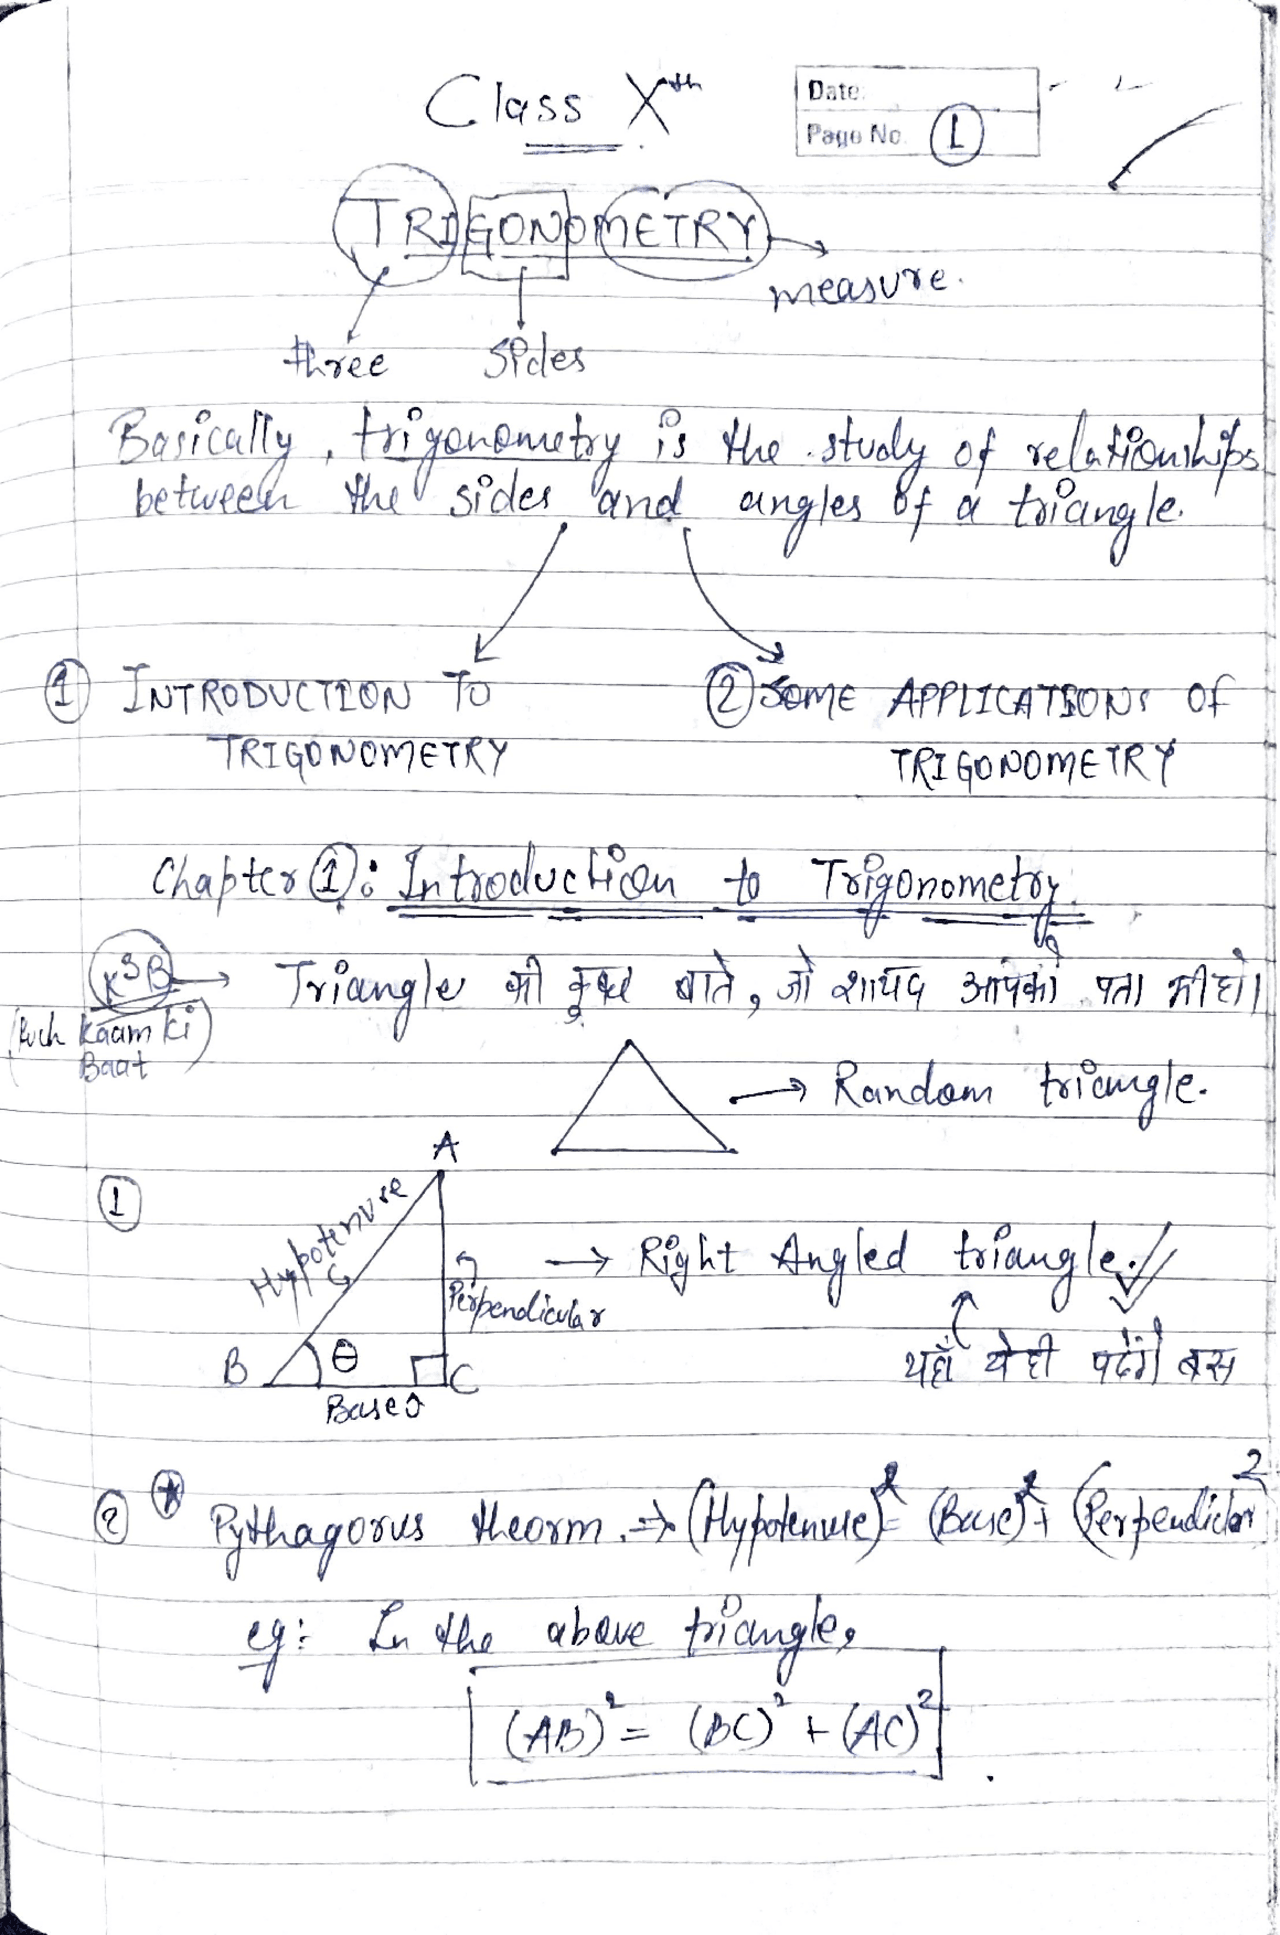 Class Xth
Date.
Page No. 1
TRIGONOMETRY
measure.
three sides
Basically, trigonometry is the study of relationships
between the sides and angles of a triangle.
① INTRODUCTION TO ② SOME APPLICATIONS OF
TRIGONOMETRY TRIGONOMETRY
Chapter ①: Introduction to Trigonometry.
K³B → Triangle की कुछ बाते, जो शायद आपको पता भी हो।
(Kuch Kaam ki
Baat)
→ Random triangle.
A
①
Hypotenuse
→ Right Angled triangle.
Perpendicular
यहाँ ये ही पढेंगे बस
B θ C
Base
② * Pythagorus theorm. ⇒ (Hypotenuse)² = (Base)² + (Perpendicular)²
eg: In the above triangle,
(AB)² = (BC)² + (AC)²